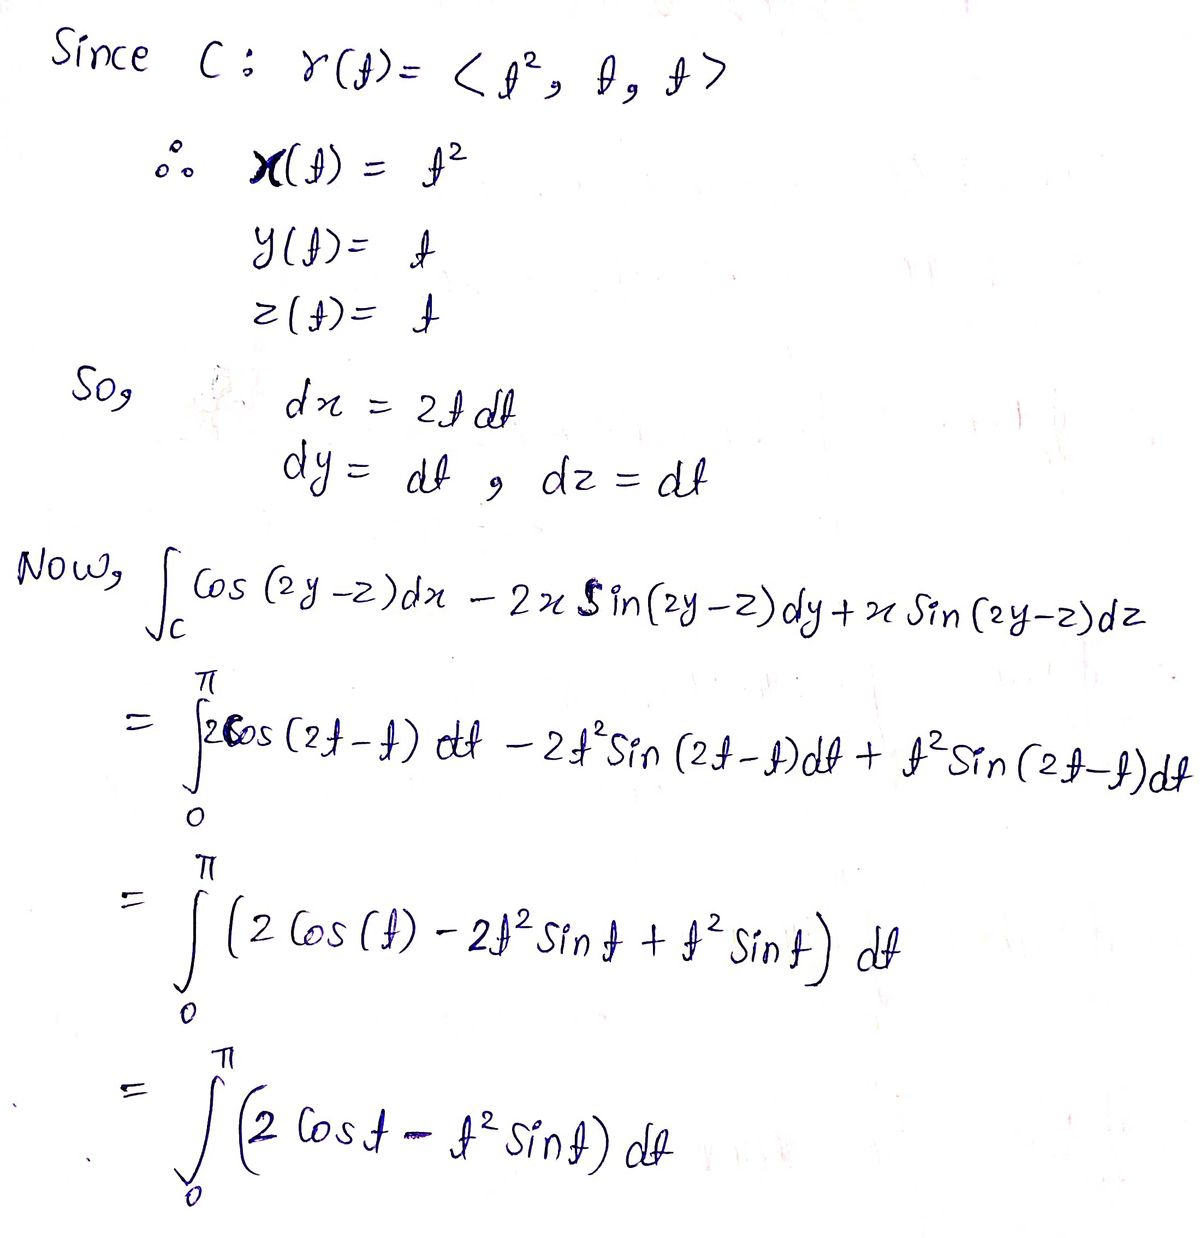 Since C: r(t) = < t², t, t >
∴ x(t) = t²
y(t) = t
z(t) = t
So, dx = 2t dt
dy = dt , dz = dt
Now, ∫_C Cos (2y-z)dx - 2x Sin(2y-z)dy + x Sin (2y-z)dz
= ∫_0^π 2Cos (2t-t) dt - 2t² Sin (2t-t)dt + t² Sin (2t-t)dt
= ∫_0^π (2 Cos(t) - 2t² sin t + t² sin t) dt
= ∫_0^π (2 Cos t - t² sin t) dt